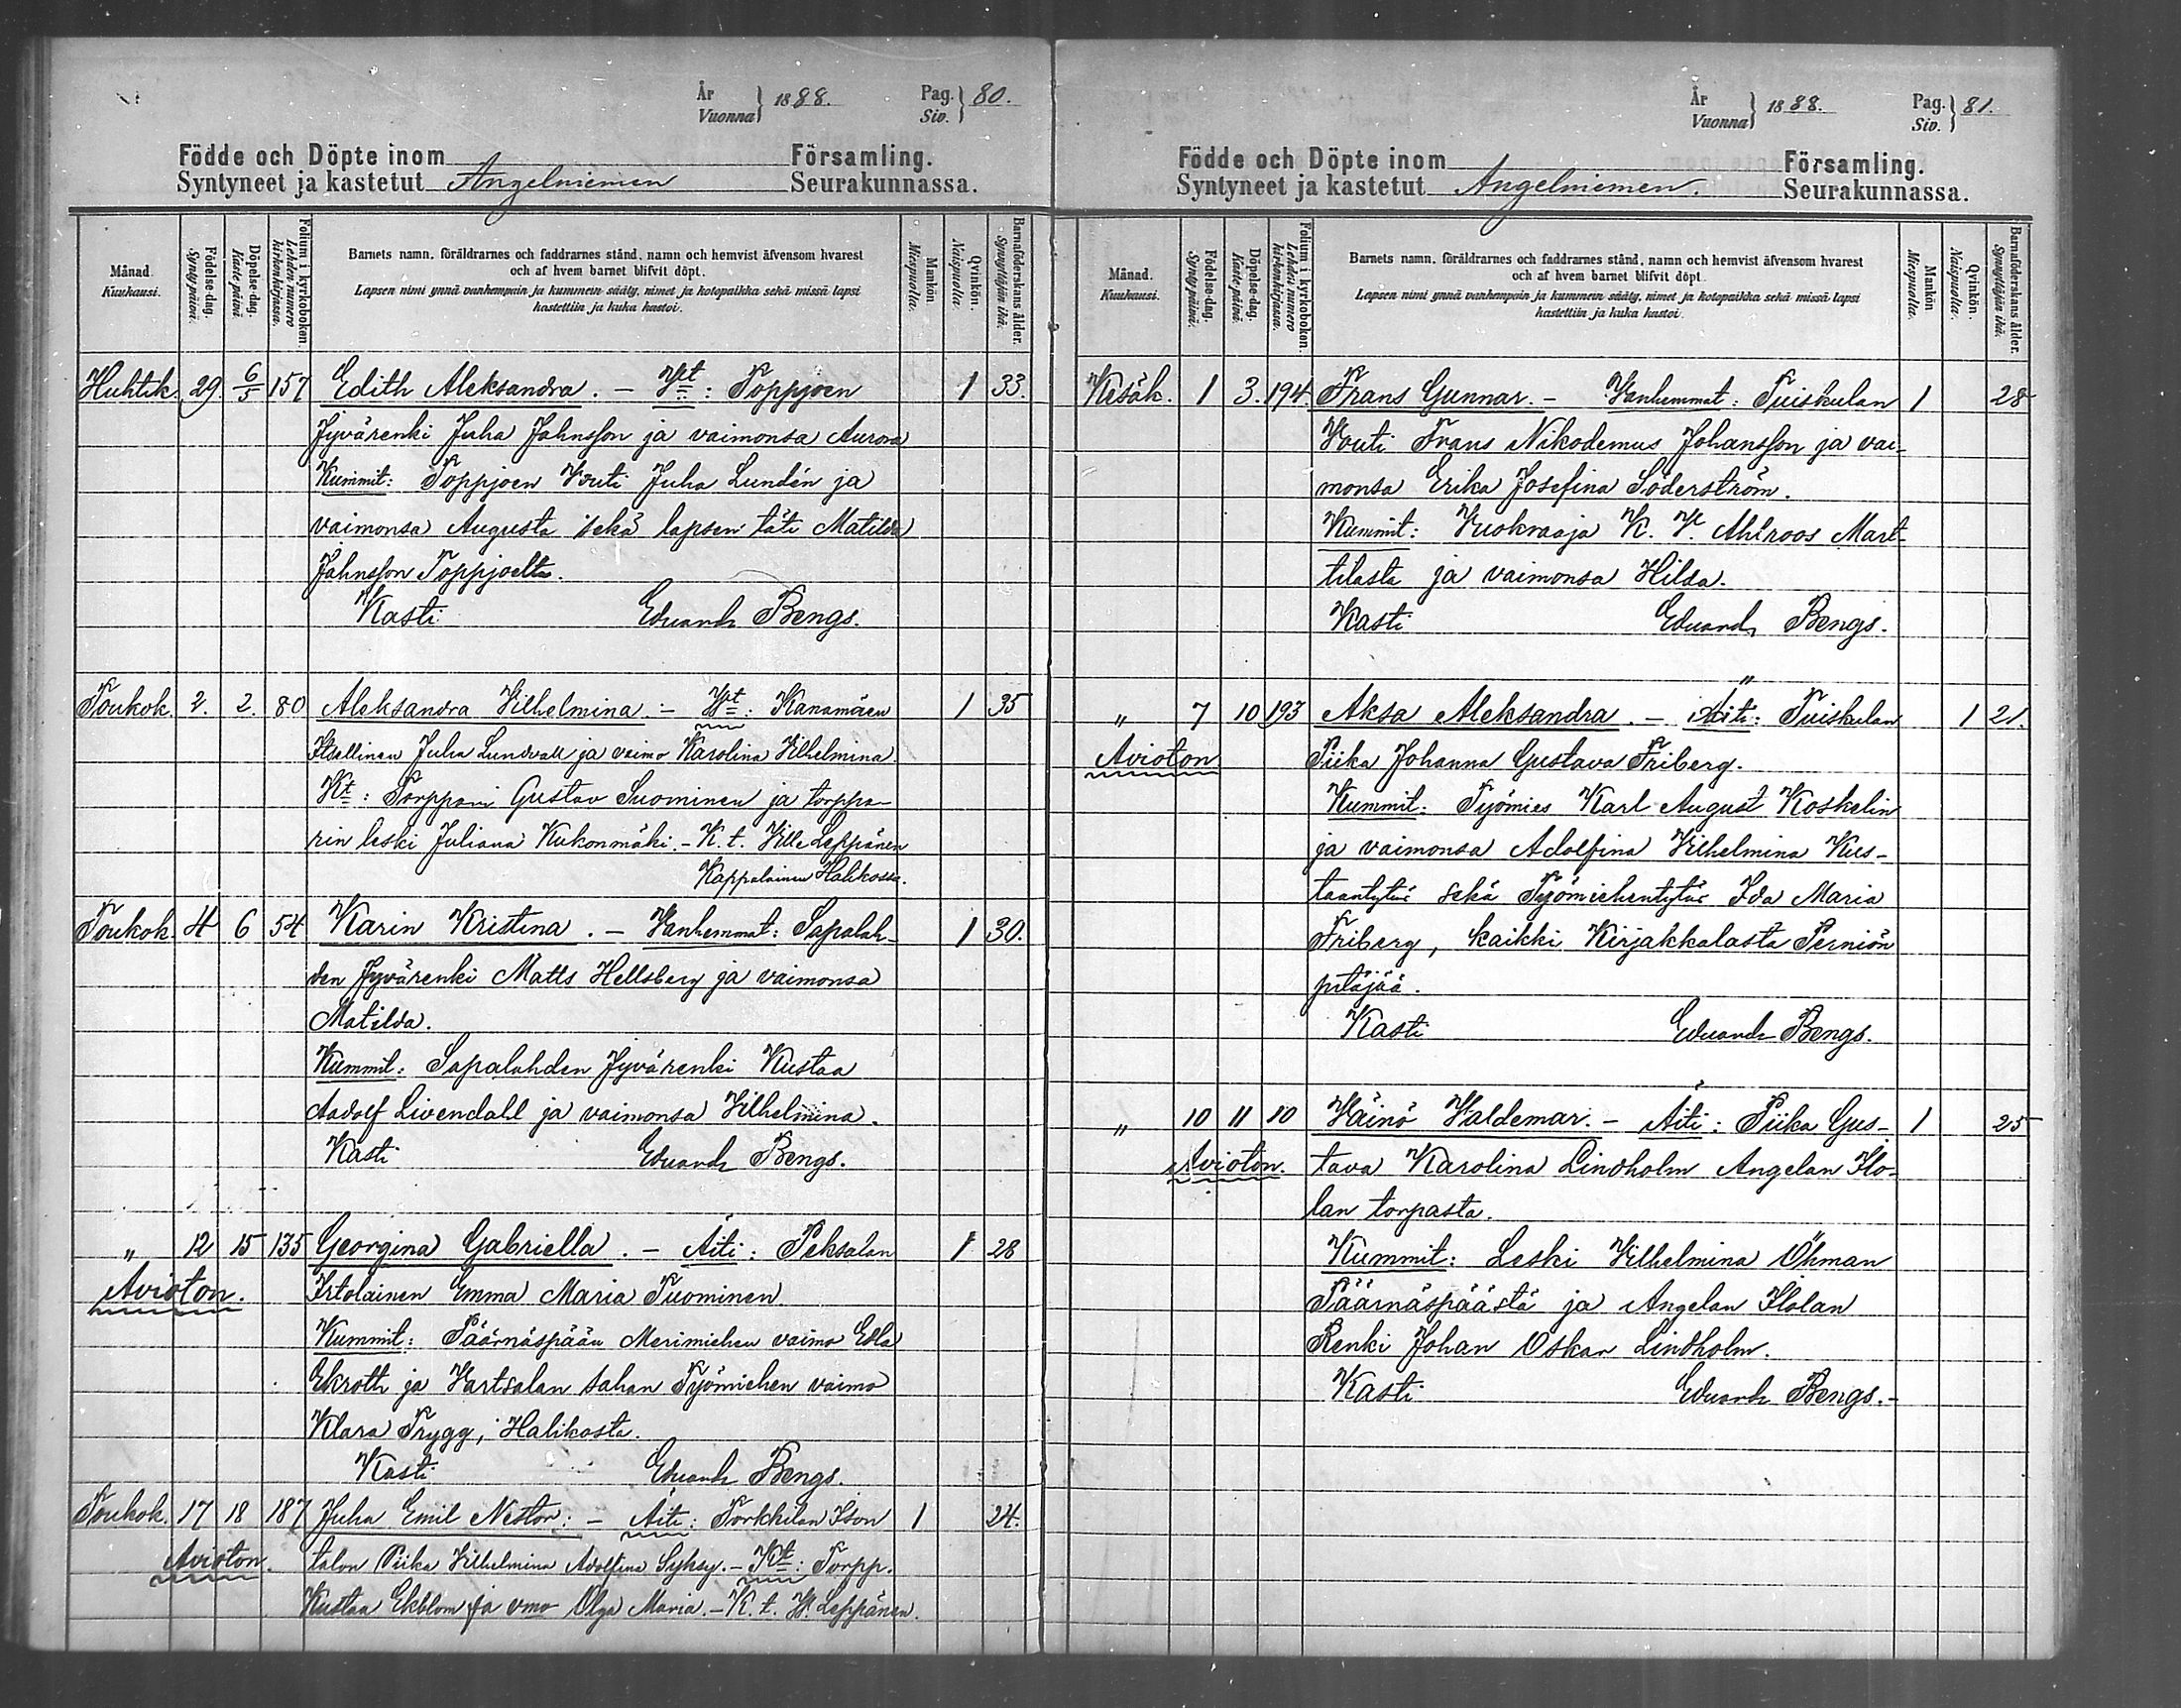 År
Vuonna } 1888. Pag.
Siv. } 80.
Födde och Döpte inom Församling.
Syntyneet ja kastetut Angelniemen Seurakunnassa.
Månad. Kuukausi.
Födelse-dag. Synty päivä.
Döpelse-dag. Kaste päivä.
Folium i kyrkoboken. Lehden numero kirkonkirjassa.
Barnets namn, föräldrarnes och faddrarnes stånd, namn och hemvist äfvensom hvarest
och af hvem barnet blifvit döpt.
Lapsen nimi ynnä vanhempain ja kummein sääty, nimet ja kotopaikka sekä missä lapsi
kastettiin ja kuka kastoi.
Mankön Miespuolia.
Qvinkön. Naispuolia.
Barnaföderskans ålder. Synnyttäjän ikä.
Huhtik. 29. 6/5 157 Edith Aleksandra. – Vt: Toppjoen 1 33.
Jyvärenki Juha Johnsson ja vaimonsa Aurora
Kummit: Toppjoen Vouti Juha Lundén ja
vaimonsa Augusta sekä lapsen täti Matilda
Johnsson Toppjoelta.
Kasti Eduard Bengs.
Toukok. 2. 2. 80 Aleksandra Vilhelmina. – Vt: Kanamäen 1 35
Itsellinen Juha Lundvall ja vaimo Karolina Vilhelmina.
Kt: Torppari Gustav Suominen ja torppa-
rin leski Juliana Kukonmäki. – K. t. Ville Leppänen
Kappalainen Halikossa.
Toukok. 4 6 54 Karin Kristina. – Vanhemmat: Sapalah- 1 30.
den Jyvärenki Matts Hellsberg ja vaimonsa
Matilda.
Kummit: Sapalahden Jyvärenki Kustaa
Aadolf Livendall ja vaimonsa Vilhelmina.
Kasti Eduard Bengs.
" 12 15 135 Georgina Gabriella. – Äiti: Peksalan 1 28
Avioton. Irtolainen Emma Maria Tuominen.
Kummit: Päärnäspään Merimiehen vaimo Edla
Ekroth ja Vartsalan sahan Työmiehen vaimo
Klara Trygg, Halikosta.
Kasti Eduard Bengs.
Toukok. 17 18 187 Juha Emil Nestor: – Äiti: Torkkilan Ison 1 24.
Avioton. talon Piika Vilhelmina Adolfina Syksy. – Kt: Torpp.
Kustaa Ekblom ja vmo Olga Maria. – K. t. V. Leppänen.
År
Vuonna } 1888. Pag.
Siv. } 81.
Födde och Döpte inom Församling.
Syntyneet ja kastetut Angelniemen. Seurakunnassa.
Månad. Kuukausi.
Födelse-dag. Synty päivä.
Döpelse-dag. Kaste päivä.
Folium i kyrkoboken. Lehden numero kirkonkirjassa.
Barnets namn, föräldrarnes och faddrarnes stånd, namn och hemvist äfvensom hvarest
och af hvem barnet blifvit döpt.
Lapsen nimi ynnä vanhempain ja kummein sääty, nimet ja kotopaikka sekä missä lapsi
kastettiin ja kuka kastoi.
Mankön Miespuolia.
Qvinkön. Naispuolia.
Barnaföderskans ålder. Synnyttäjän ikä.
Kesäk. 1 3. 194. Frans Gunnar. – Vanhemmat: Tuiskulan 1 28
Vouti Frans Nikodemus Johansson ja vai-
monsa Erika Josefina Söderström.
Kummit: Vuokraaja K. V. Ahlroos Mart-
tilasta ja vaimonsa Hilda.
Kasti Eduard Bengs.
" 7 10 193 Aksa Aleksandra. – Äiti: Tuiskulan 1 21.
Avioton Piika Johanna Gustava Friberg.
Kummit: Työmies Karl August Koskelin
ja vaimonsa Adolfina Vilhelmina Kus-
taantytär sekä Työmiehentytär Ida Maria
Friberg, kaikki Kirjakkalasta Perniön
pitäjää.
Kasti Eduard Bengs.
" 10 11 10 Väinö Valdemar. – Äiti: Piika Gus- 1 25
Avioton. tava Karolina Lindholm Angelan Ilo-
lan torpasta.
Kummit: Leski Vilhelmina Öhman
Päärnäspäästä ja Angelan Ilolan
Renki Johan Oskar Lindholm.
Kasti Eduard Bengs. –